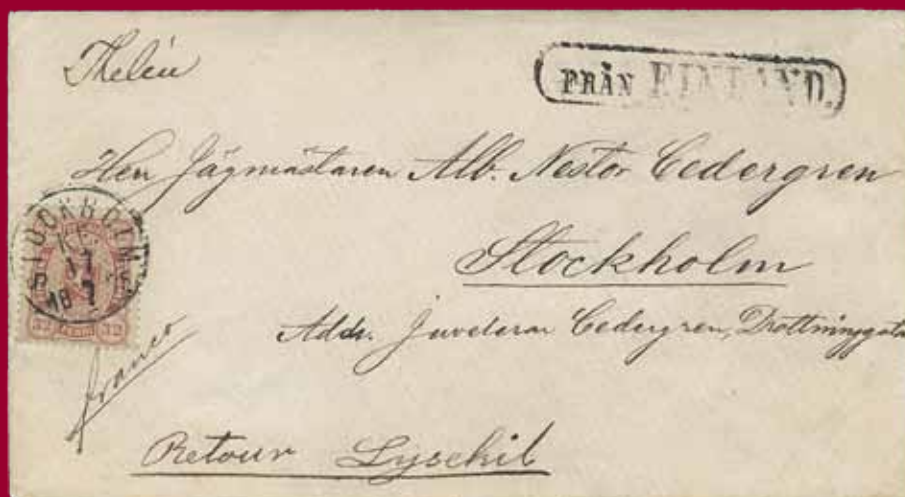 Thelin
FRÅN FINLAND.
Herr Jägmästaren Alb. Nestor Cedergren
Stockholm
STOCKHOLM
17
7
Addr. Juveleraren Cedergren, Drottninggata
32 32
franco
Retour Lysekil